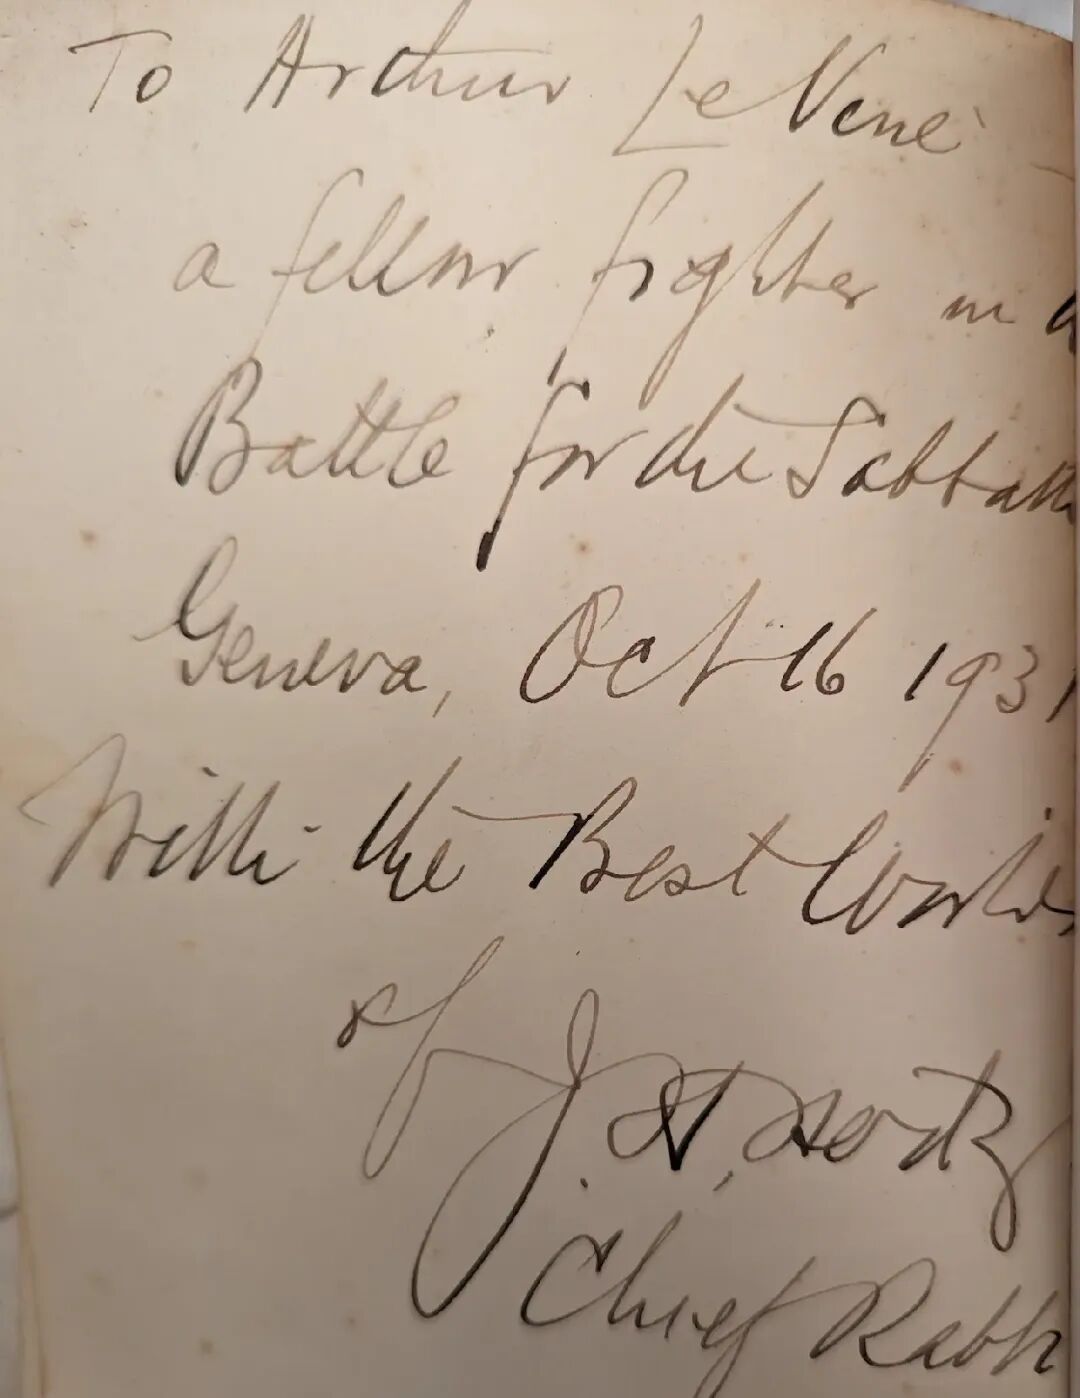 To Arthur Le Vene
a fellow fighter in
Battle for the Sabbath
Geneva, Oct 16 1931
With the Best Wishes
of J. H. Hertz
Chief Rabb